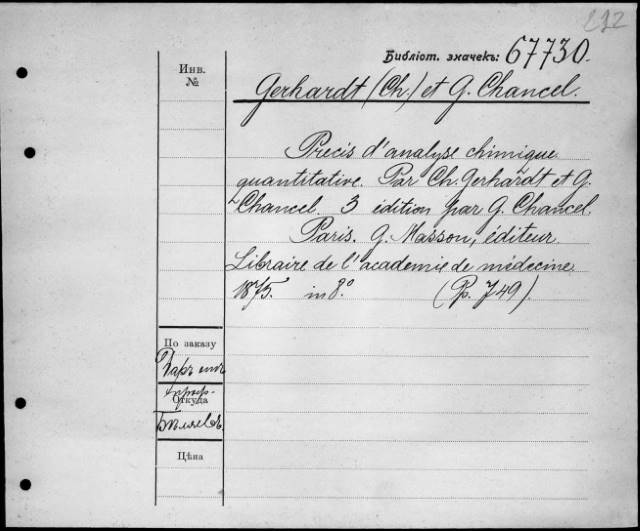 Библіот. значекъ: 67730.
Инв.
№
Gerhardt (Ch.) et G. Chancel.
Précis d'analyse chimique
quantitative. Par Ch. Gerhardt et G.
Chancel. 3 édition par G. Chancel.
Paris. G. Masson, éditeur.
Libraire de l'academie de médecine
1875. in 8.° (P. 749).
По заказу
проф.
Откуда
Бѣляевъ
Цѣна